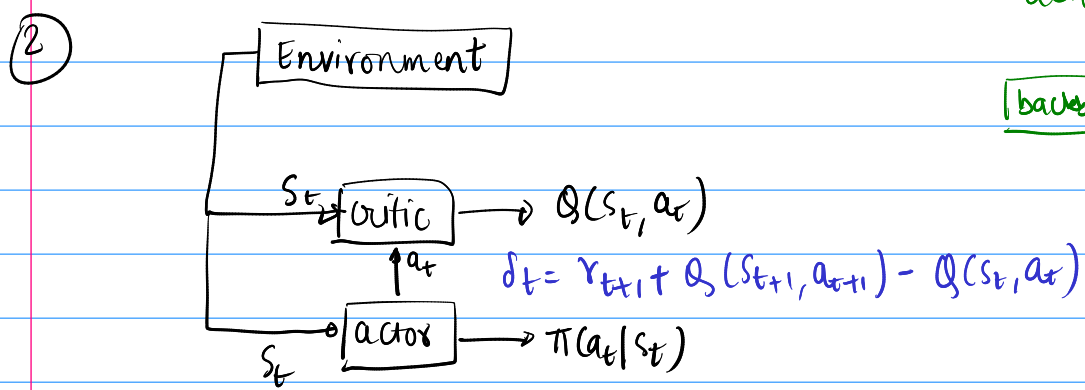 2
Environment
S_t critic → Q(S_t, a_t)
a_t
δ_t = r_{t+1} + Q(S_{t+1}, a_{t+1}) - Q(S_t, a_t)
actor → π(a_t|S_t)
S_t